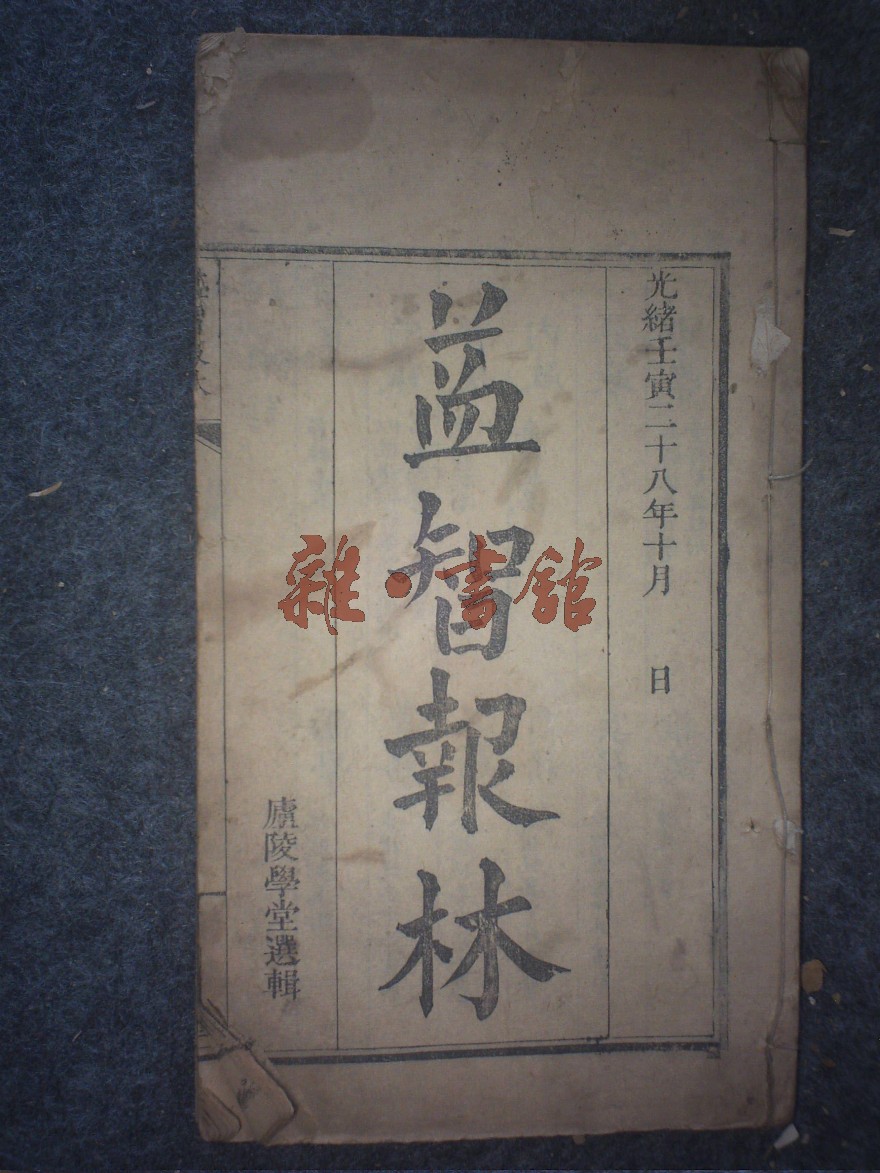 光緒壬寅二十八年十月　日
益智報林
廬陵學堂選輯
雜·書館